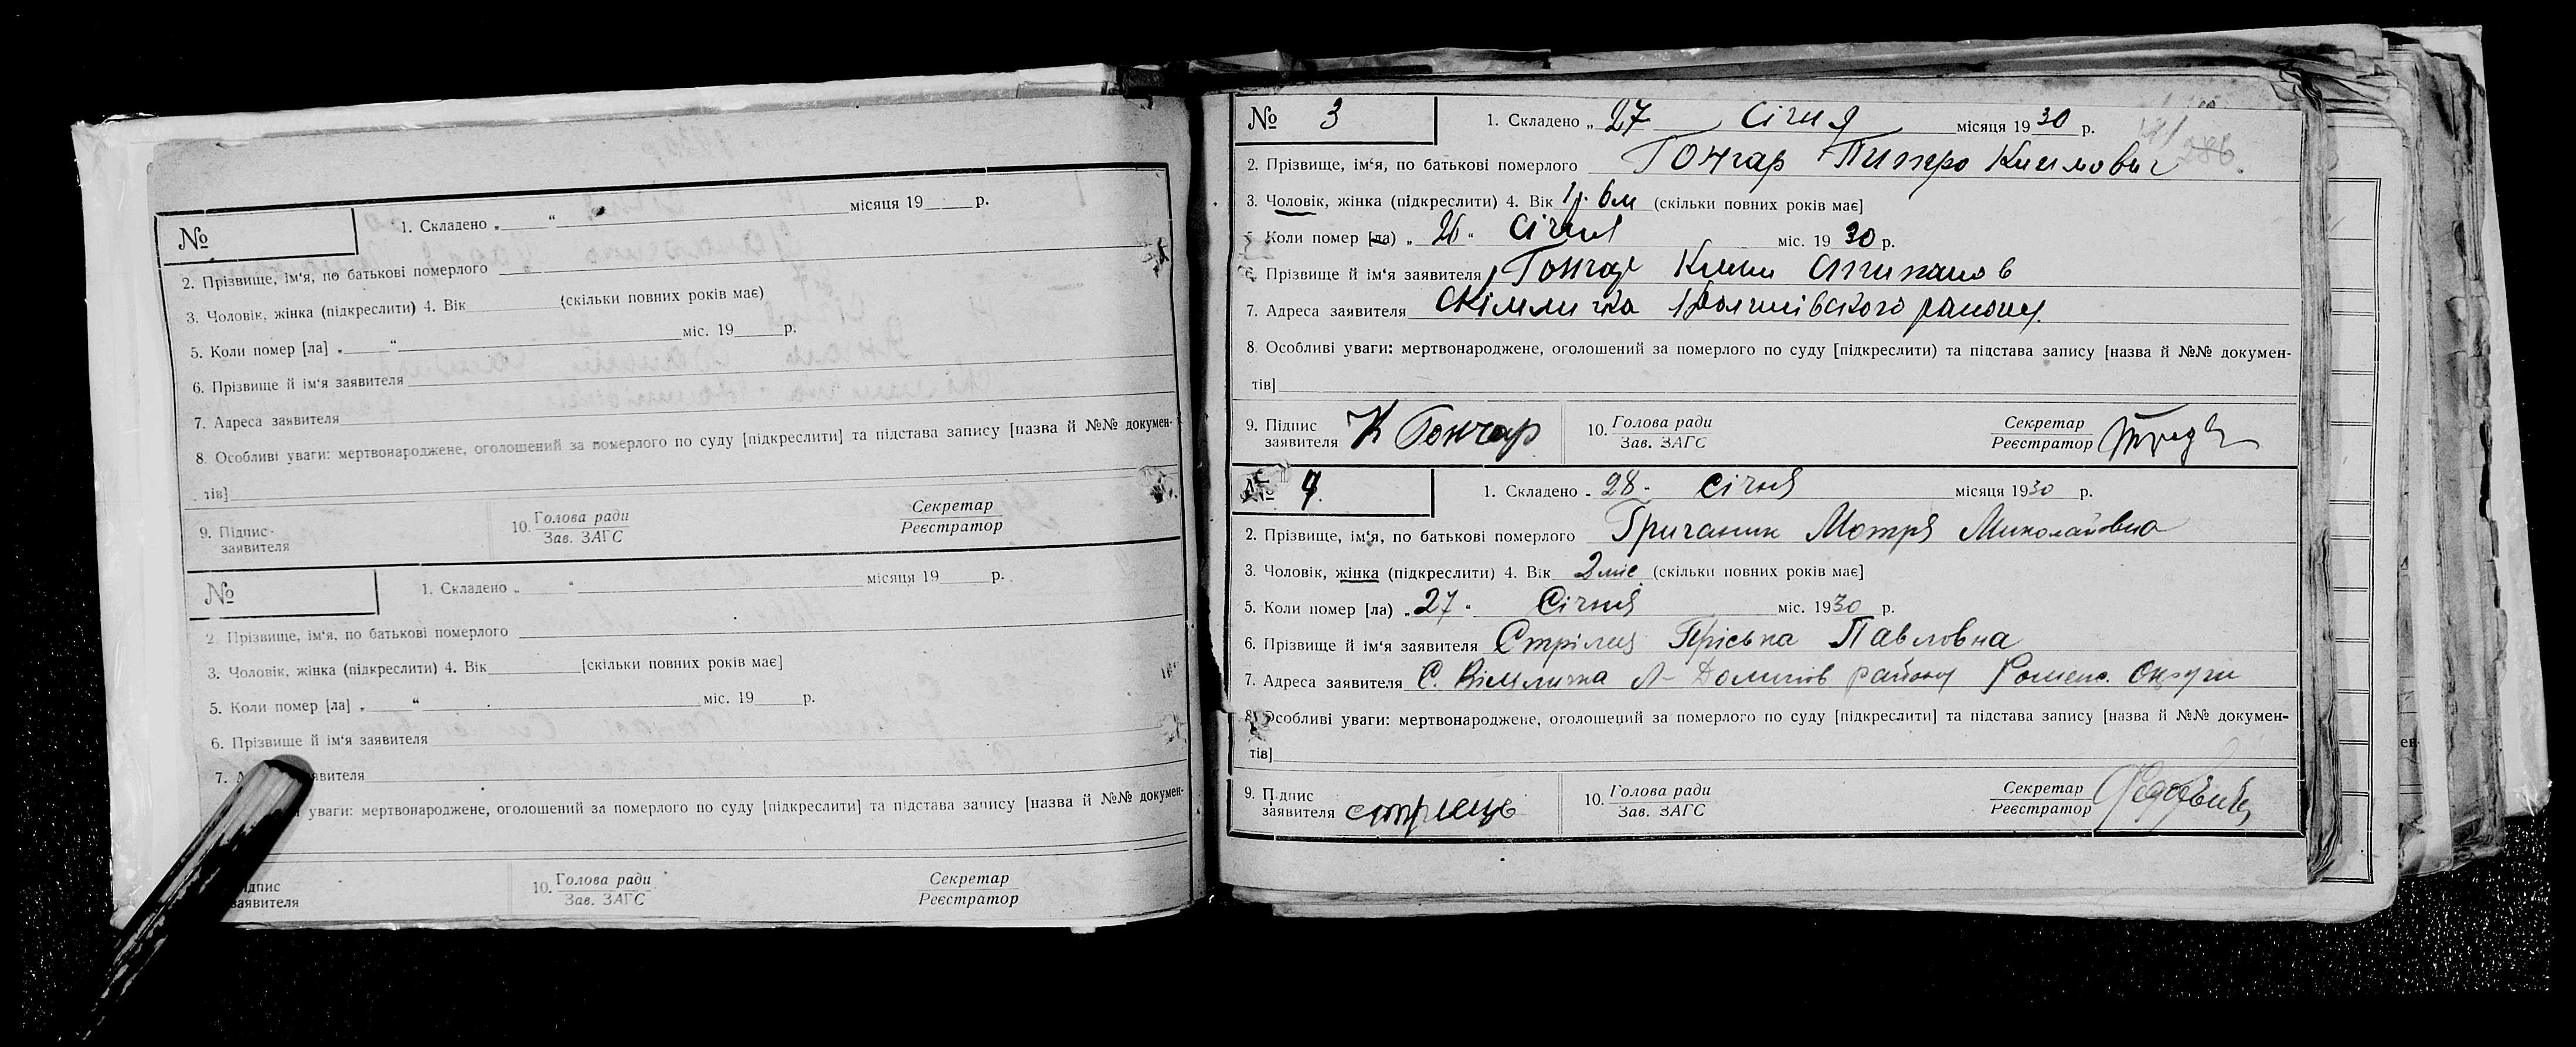 №
1. Складено „ “ місяця 19 р.
2. Прізвище, ім‘я, по батькові померлого
3. Чоловік, жінка (підкреслити) 4. Вік (скільки повних років має)
5. Коли помер [ла] „ “ міс. 19 р.
6. Прізвище й ім‘я заявителя
7. Адреса заявителя
8. Особливі уваги: мертвонароджене, оголошений за померлого по суду [підкреслити] та підстава запису [назва й №№ докумен-
тів]
9. Підпис заявителя 10. Голова ради Зав. ЗАГС Секретар Реєстратор
№
1. Складено „ “ місяця 19 р.
2. Прізвище, ім‘я, по батькові померлого
3. Чоловік, жінка (підкреслити) 4. Вік [скільки повних років має]
5. Коли помер [ла] „ “ міс. 19 р.
6. Прізвище й ім‘я заявителя
7. А явителя
уваги: мертвонароджене, оголошений за померлого по суду [підкреслити] та підстава запису [назва й №№ докумен-
ідпис заявителя 10. Голова ради Зав. ЗАГС Секретар Реєстратор
№ 3 1. Складено „ 27 Січня місяця 1930 р.
286
2. Прізвище, ім‘я, по батькові померлого Гончар Климович
3. Чоловік, жінка (підкреслити) 4. Вік 1 р. 6 м (скільки повних років має]
5. Коли помер [ла) „ 26 “ Січня міс. 1930 р.
6. Прізвище й ім‘я заявителя Гончар Клим
7. Адреса заявителя району
8. Особливі уваги: мертвонароджене, оголошений за померлого по суду [підкреслити) та підстава запису [назва й №№ докумен-
тів]
9. Підпис заявителя К Гончар 10. Голова ради Зав. ЗАГС Секретар Реєстратор
№ 4. 1. Складено „ 28 “ Січня місяця 1930 р.
2. Прізвище, ім‘я, по батькові померлого Гричаник Мотря Миколаївна
3. Чоловік, жінка (підкреслити) 4. Вік 2 міс (скільки повних років має]
5. Коли помер [ла) „ 27 “ Січня міс. 1930 р.
6. Прізвище й ім‘я заявителя Стрілец Пріська Павловна
7. Адреса заявителя С. району Роменс. Округи
8. Особливі уваги: мертвонароджене, оголошений за померлого по суду [підкреслити] та підстава запису [назва й №№ докумен-
тів]
9. Підпис заявителя 10. Голова ради Зав. ЗАГС Секретар Реєстратор